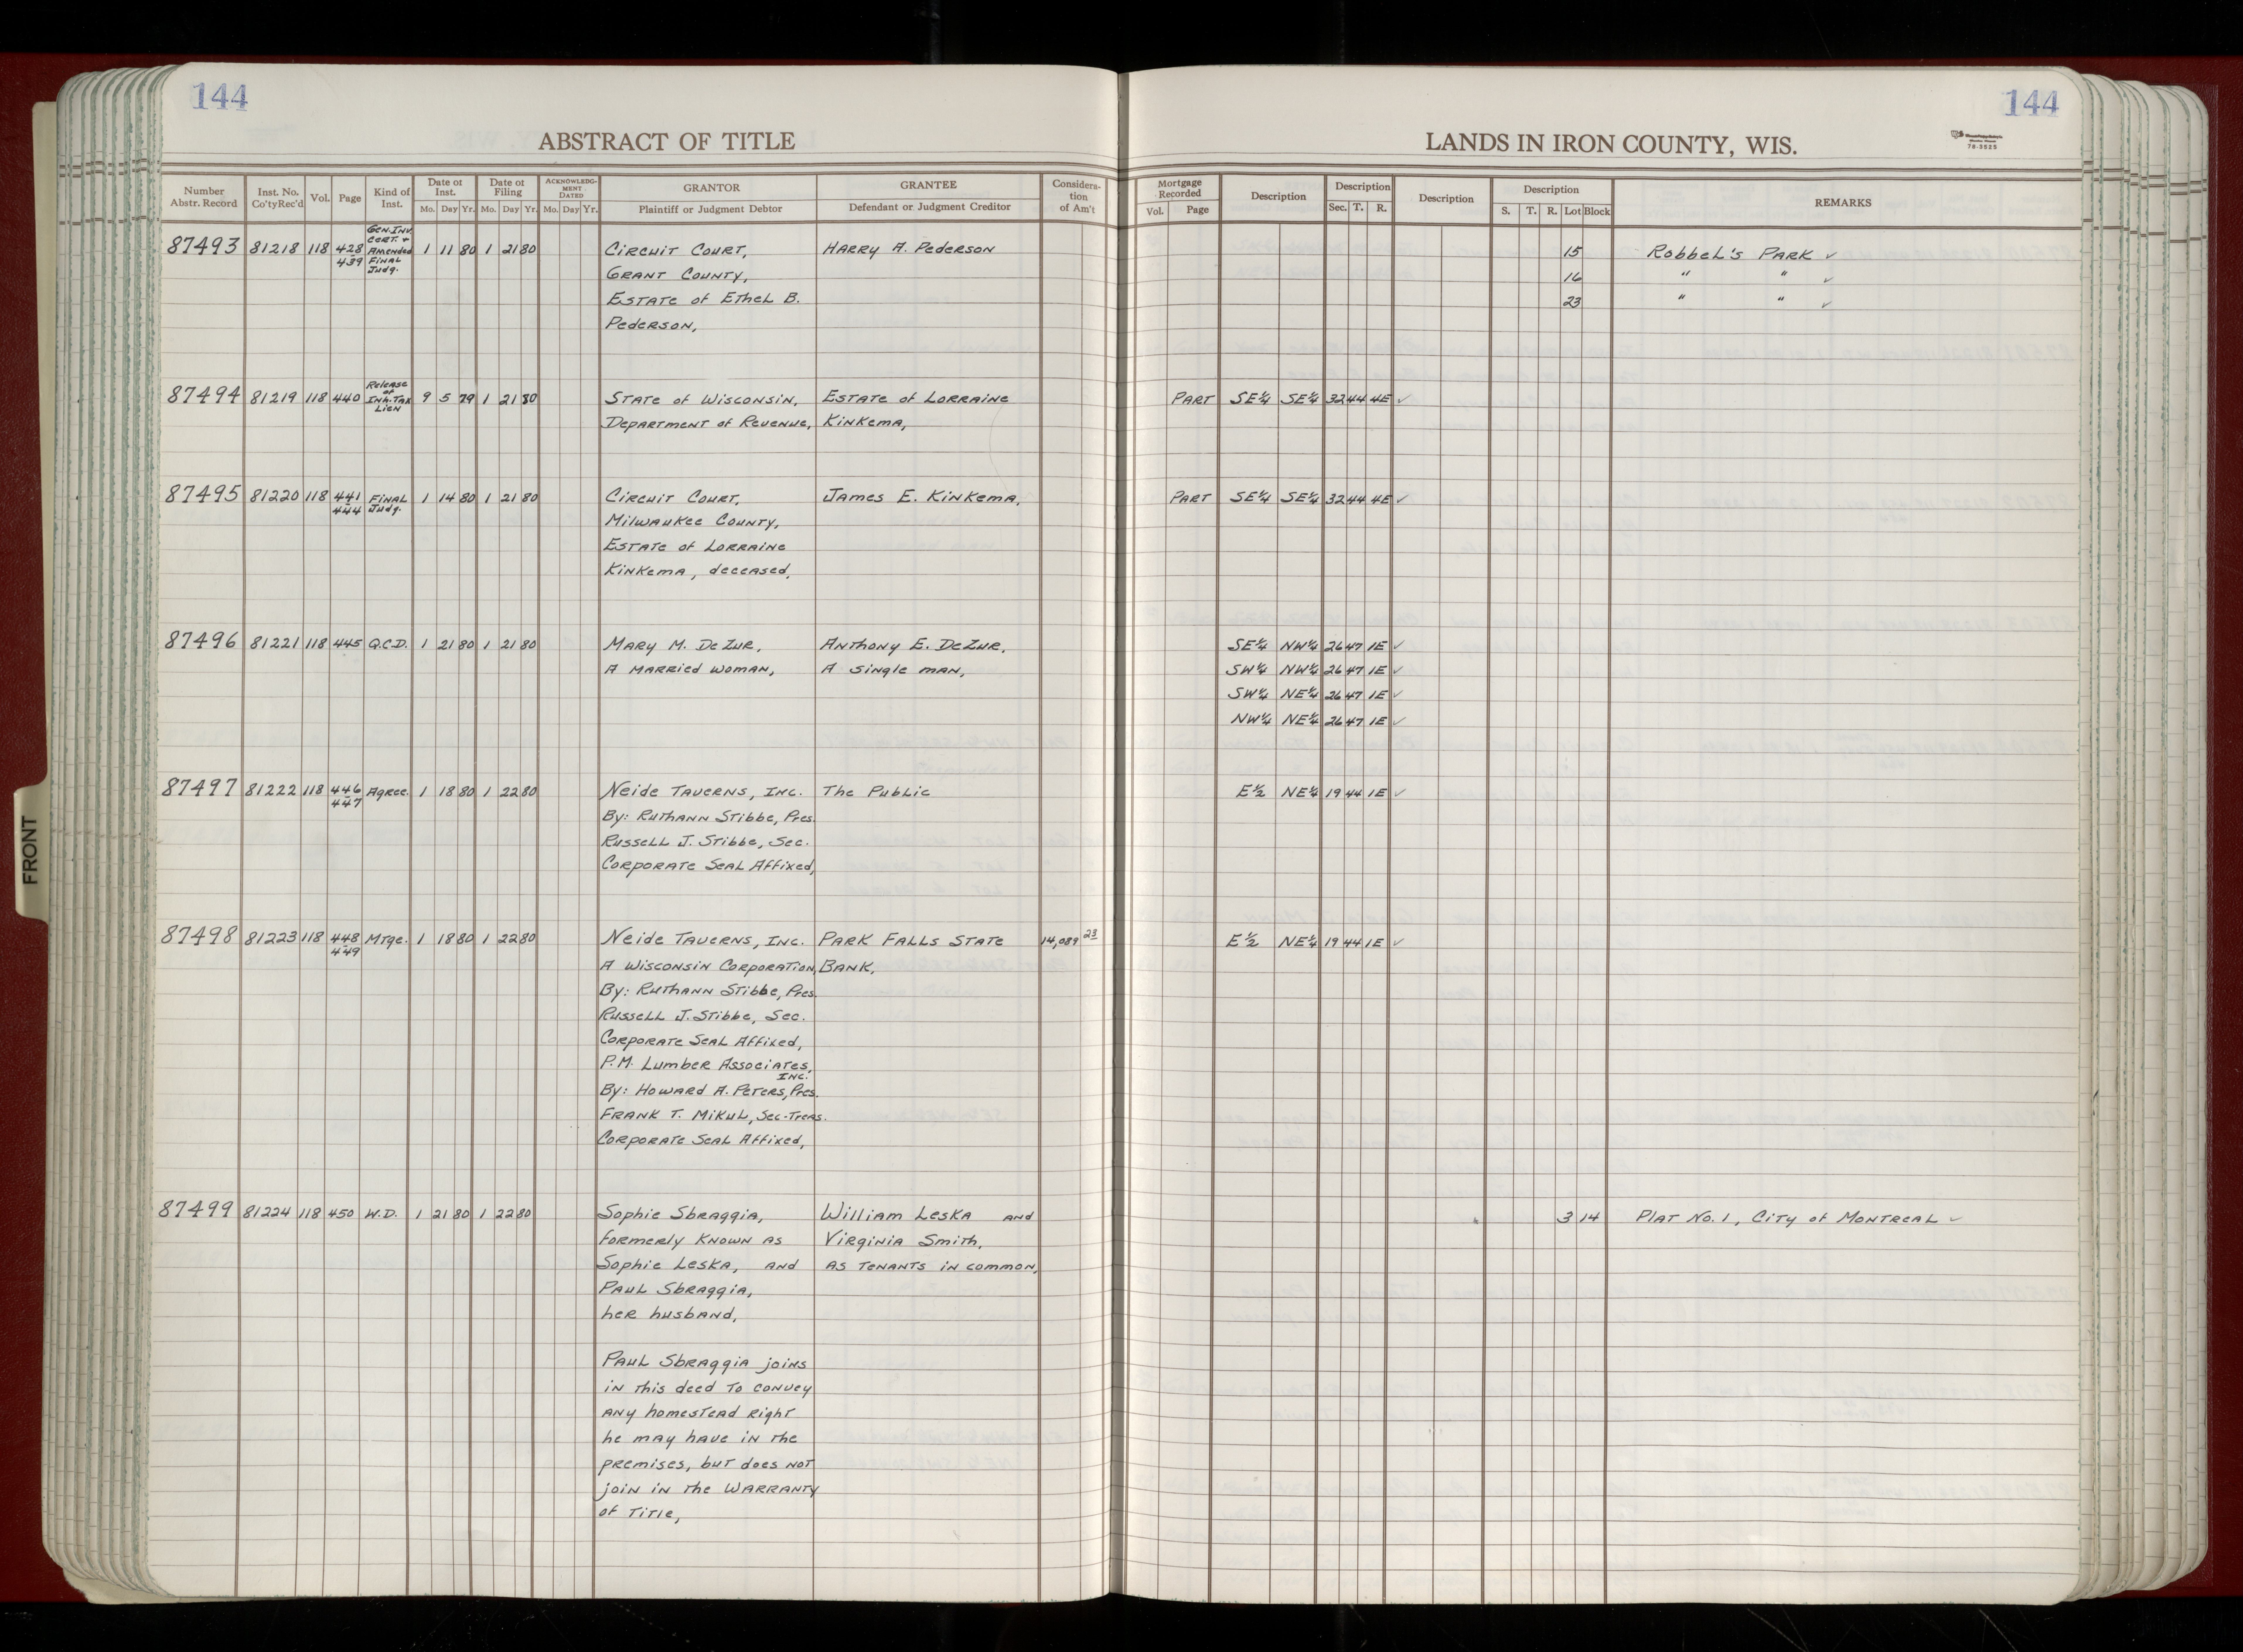 144
144
ABSTRACT OF TITLE
LANDS IN IRON COUNTY, WIS.
78-3525
Number Abstr. Record
Inst. No. Co'ty Rec'd
Vol.
Page
Kind of Inst.
Date of Inst.
Mo. Day Yr.
Date of Filing
Mo. Day Yr.
ACKNOWLEDG-MENT DATED
Mo. Day Yr.
GRANTOR
Plaintiff or Judgment Debtor
GRANTEE
Defendant or Judgment Creditor
Considera-tion of Am't
Mortgage Recorded
Vol. Page
Description
Description
Sec. T. R.
Description
Description
S. T. R. Lot Block
REMARKS
87493 81218 118 428 Gen. Inv. Cert. & Amended Final Judg. 1 11 80 1 21 80 Circuit Court, Harry A. Pederson 15 Robbel's Park ✓
439 Grant County, 16 " " ✓
Estate of Ethel B. 23 " " ✓
Pederson,
87494 81219 118 440 Release of Inh. Tax Lien 9 5 79 1 21 80 State of Wisconsin, Estate of Lorraine Part SE¼ SE¼ 32 44 4E ✓
Department of Revenue, Kinkema,
87495 81220 118 441 Final Judg. 1 14 80 1 21 80 Circuit Court, James E. Kinkema, Part SE¼ SE¼ 32 44 4E ✓
444 Milwaukee County,
Estate of Lorraine
Kinkema, deceased,
87496 81221 118 445 Q.C.D. 1 21 80 1 21 80 Mary M. DeZur, Anthony E. DeZur, SE¼ NW¼ 26 47 1E ✓
A married woman, A single man, SW¼ NW¼ 26 47 1E ✓
SW¼ NE¼ 26 47 1E ✓
NW¼ NE¼ 26 47 1E ✓
87497 81222 118 446 Agree. 1 18 80 1 22 80 Neide Taverns, Inc. The Public E½ NE¼ 19 44 1E ✓
447 By: Ruthann Stibbe, Pres.
Russell J. Stibbe, Sec.
Corporate Seal Affixed,
87498 81223 118 448 Mtge. 1 18 80 1 22 80 Neide Taverns, Inc. Park Falls State 14,089 23 E½ NE¼ 19 44 1E ✓
449 A Wisconsin Corporation, Bank,
By: Ruthann Stibbe, Pres.
Russell J. Stibbe, Sec.
Corporate Seal Affixed,
P.M. Lumber Associates, Inc.
By: Howard A. Peters, Pres.
Frank T. Mikul, Sec-Treas.
Corporate Seal Affixed,
87499 81224 118 450 W.D. 1 21 80 1 22 80 Sophie Sbraggia, William Leska and 3 14 Plat No. 1, City of Montreal ✓
formerly known as Virginia Smith,
Sophie Leska, and as tenants in common,
Paul Sbraggia,
her husband,
Paul Sbraggia joins
in this deed to convey
any homestead right
he may have in the
premises, but does not
join in the warranty
of title,
FRONT